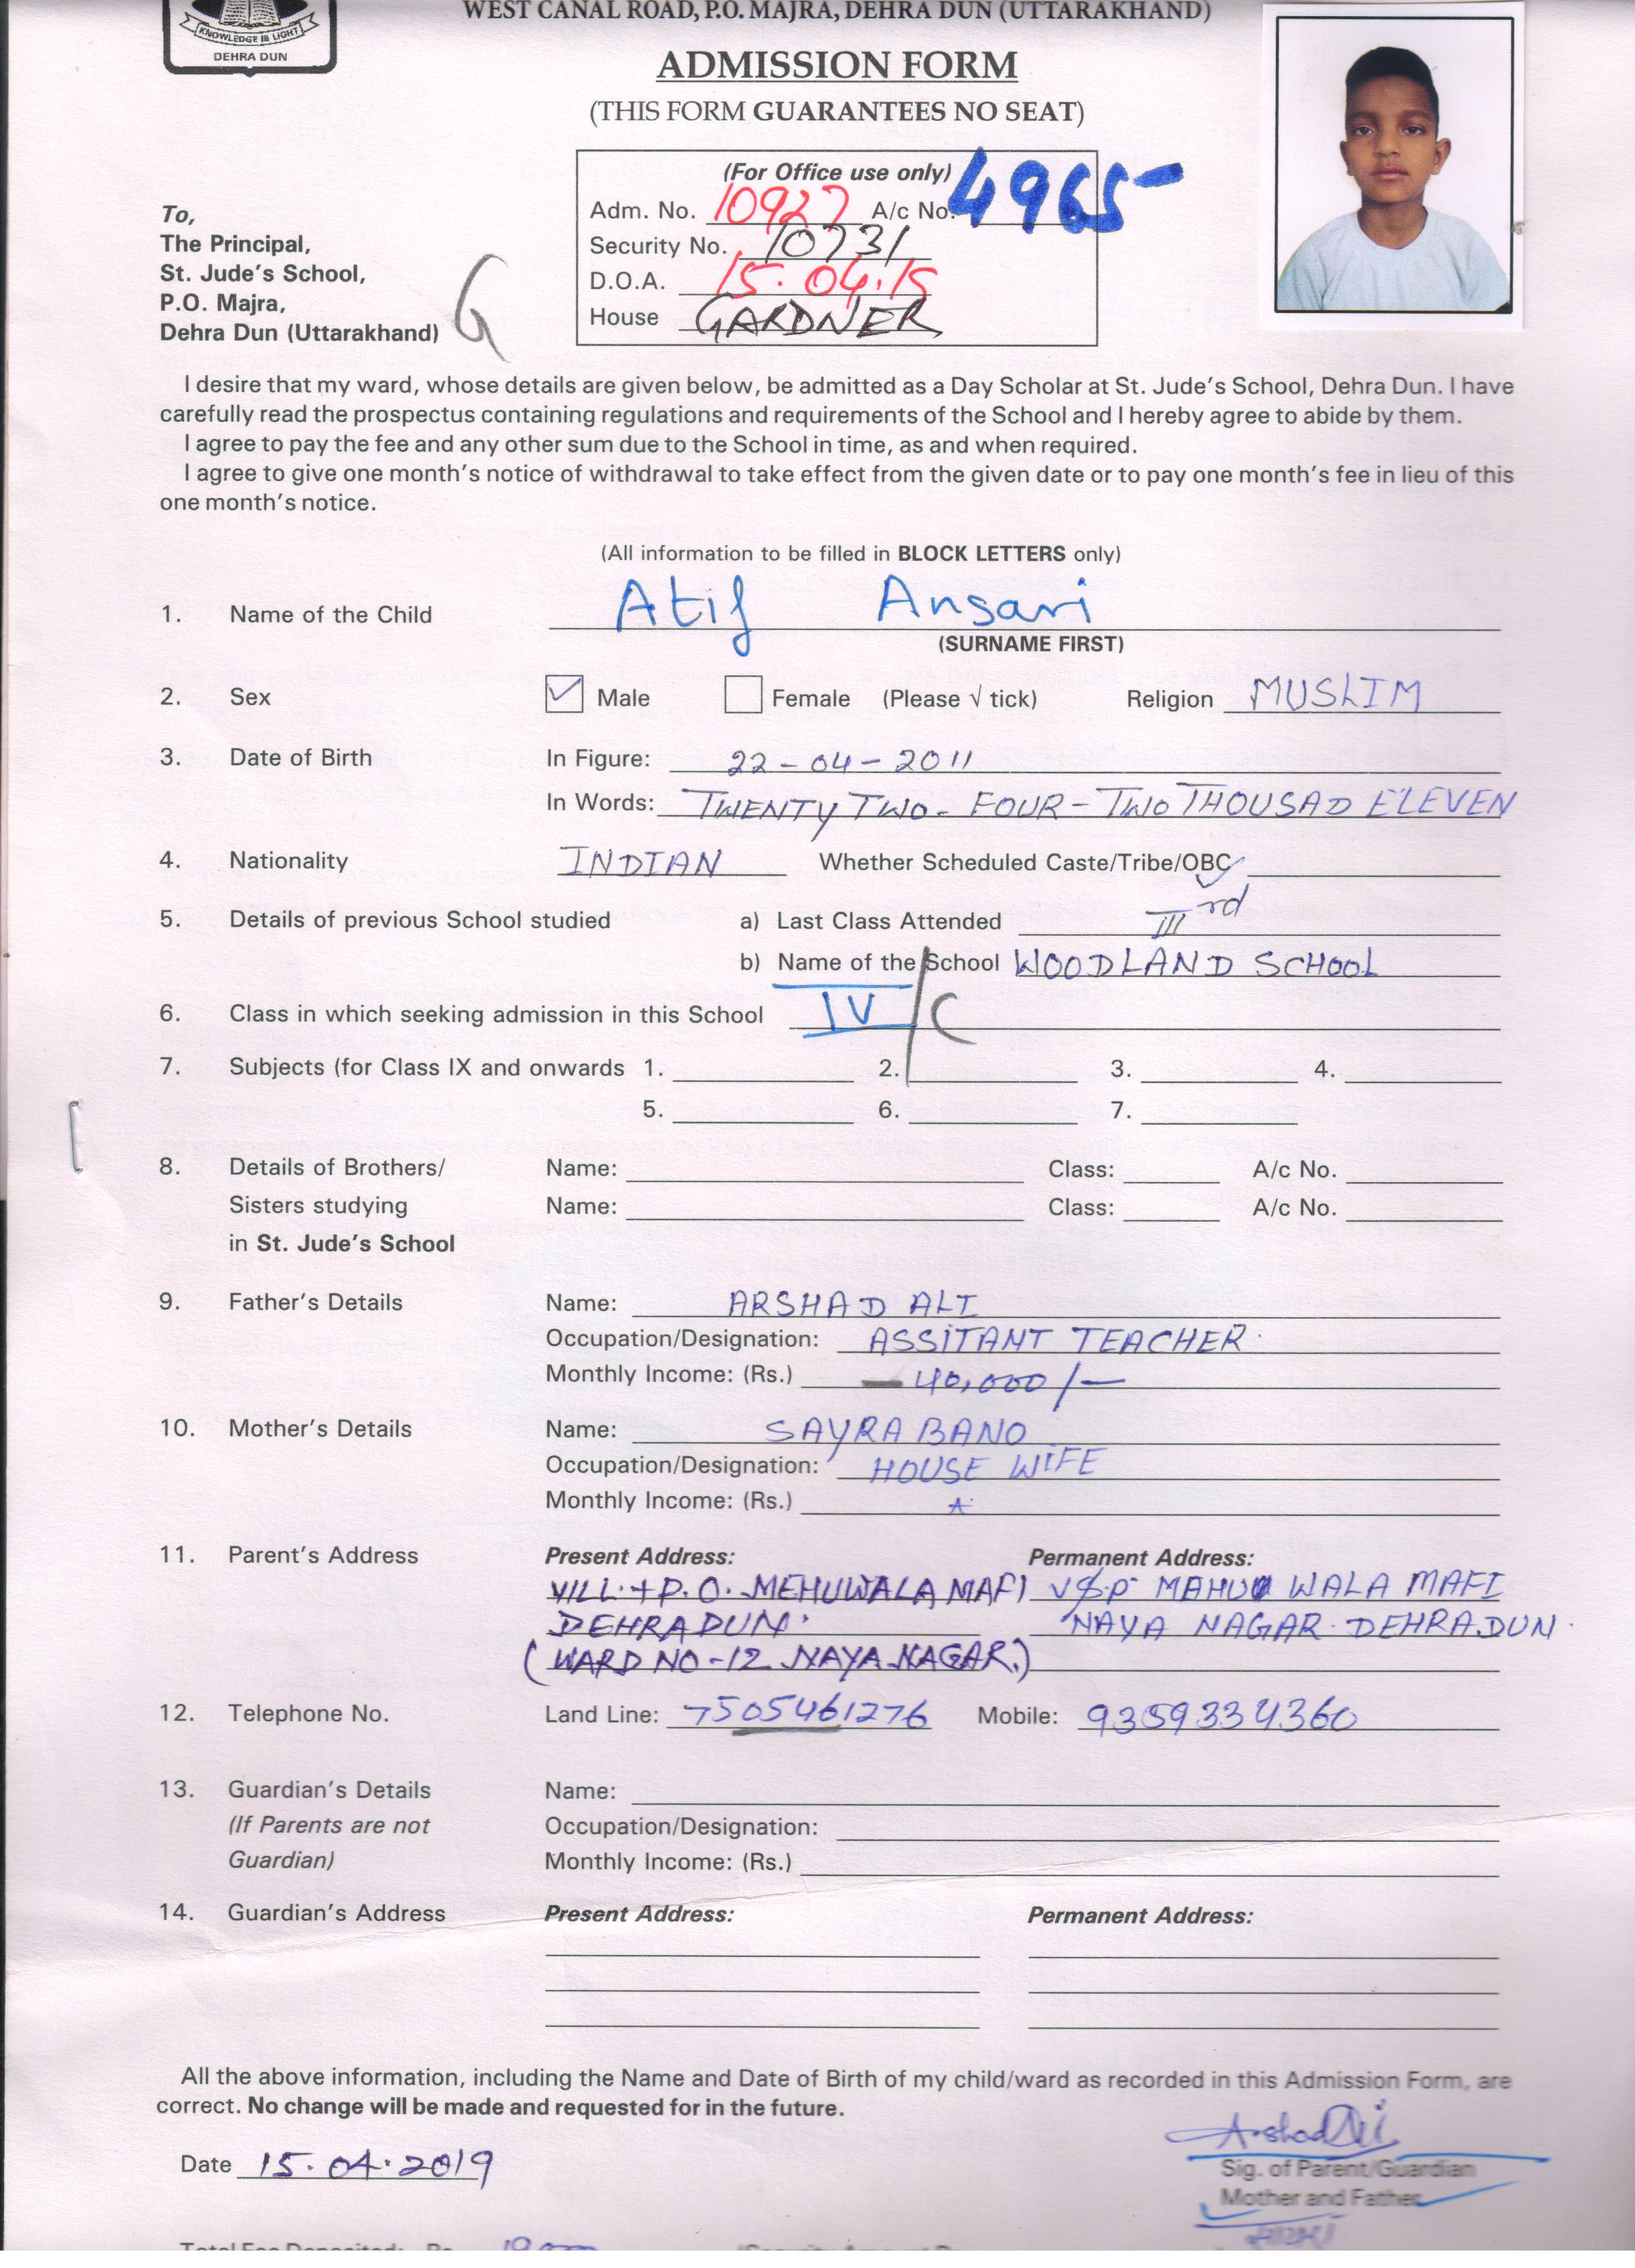 KNOWLEDGE IS LIGHT
DEHRA DUN
WEST CANAL ROAD, P.O. MAJRA, DEHRA DUN (UTTARAKHAND)
ADMISSION FORM
(THIS FORM GUARANTEES NO SEAT)
(For Office use only)
Adm. No. 10927 A/c No. 4965
Security No. 10731
D.O.A. 15.04.15
House GARDNER
To,
The Principal,
St. Jude's School,
P.O. Majra,
Dehra Dun (Uttarakhand)
G
I desire that my ward, whose details are given below, be admitted as a Day Scholar at St. Jude's School, Dehra Dun. I have
carefully read the prospectus containing regulations and requirements of the School and I hereby agree to abide by them.
I agree to pay the fee and any other sum due to the School in time, as and when required.
I agree to give one month's notice of withdrawal to take effect from the given date or to pay one month's fee in lieu of this
one month's notice.
(All information to be filled in BLOCK LETTERS only)
1. Name of the Child Atif Ansari
(SURNAME FIRST)
2. Sex ✓ Male Female (Please √ tick) Religion MUSLIM
3. Date of Birth In Figure: 22-04-2011
In Words: TWENTY TWO - FOUR - TWO THOUSAD ELEVEN
4. Nationality INDIAN Whether Scheduled Caste/Tribe/OBC
5. Details of previous School studied a) Last Class Attended III rd
b) Name of the School WOODLAND SCHOOL
6. Class in which seeking admission in this School IV / C
7. Subjects (for Class IX and onwards 1. 2. 3. 4.
5. 6. 7.
8. Details of Brothers/ Name: Class: A/c No.
Sisters studying Name: Class: A/c No.
in St. Jude's School
9. Father's Details Name: ARSHAD ALI
Occupation/Designation: ASSITANT TEACHER.
Monthly Income: (Rs.) 40,000/-
10. Mother's Details Name: SAYRA BANO
Occupation/Designation: HOUSE WIFE
Monthly Income: (Rs.)
11. Parent's Address Present Address: Permanent Address:
VILL.+P.O. MEHUWALA MAFI V&P MAHU WALA MAFI
DEHRADUN. NAYA NAGAR. DEHRADUN.
(WARD NO-12 NAYA NAGAR.)
12. Telephone No. Land Line: 7505461276 Mobile: 9359334360
13. Guardian's Details Name:
(If Parents are not Occupation/Designation:
Guardian) Monthly Income: (Rs.)
14. Guardian's Address Present Address: Permanent Address:
All the above information, including the Name and Date of Birth of my child/ward as recorded in this Admission Form, are
correct. No change will be made and requested for in the future.
Arshad Ali
Date 15.04.2019 Sig. of Parent/Guardian
Mother and Father